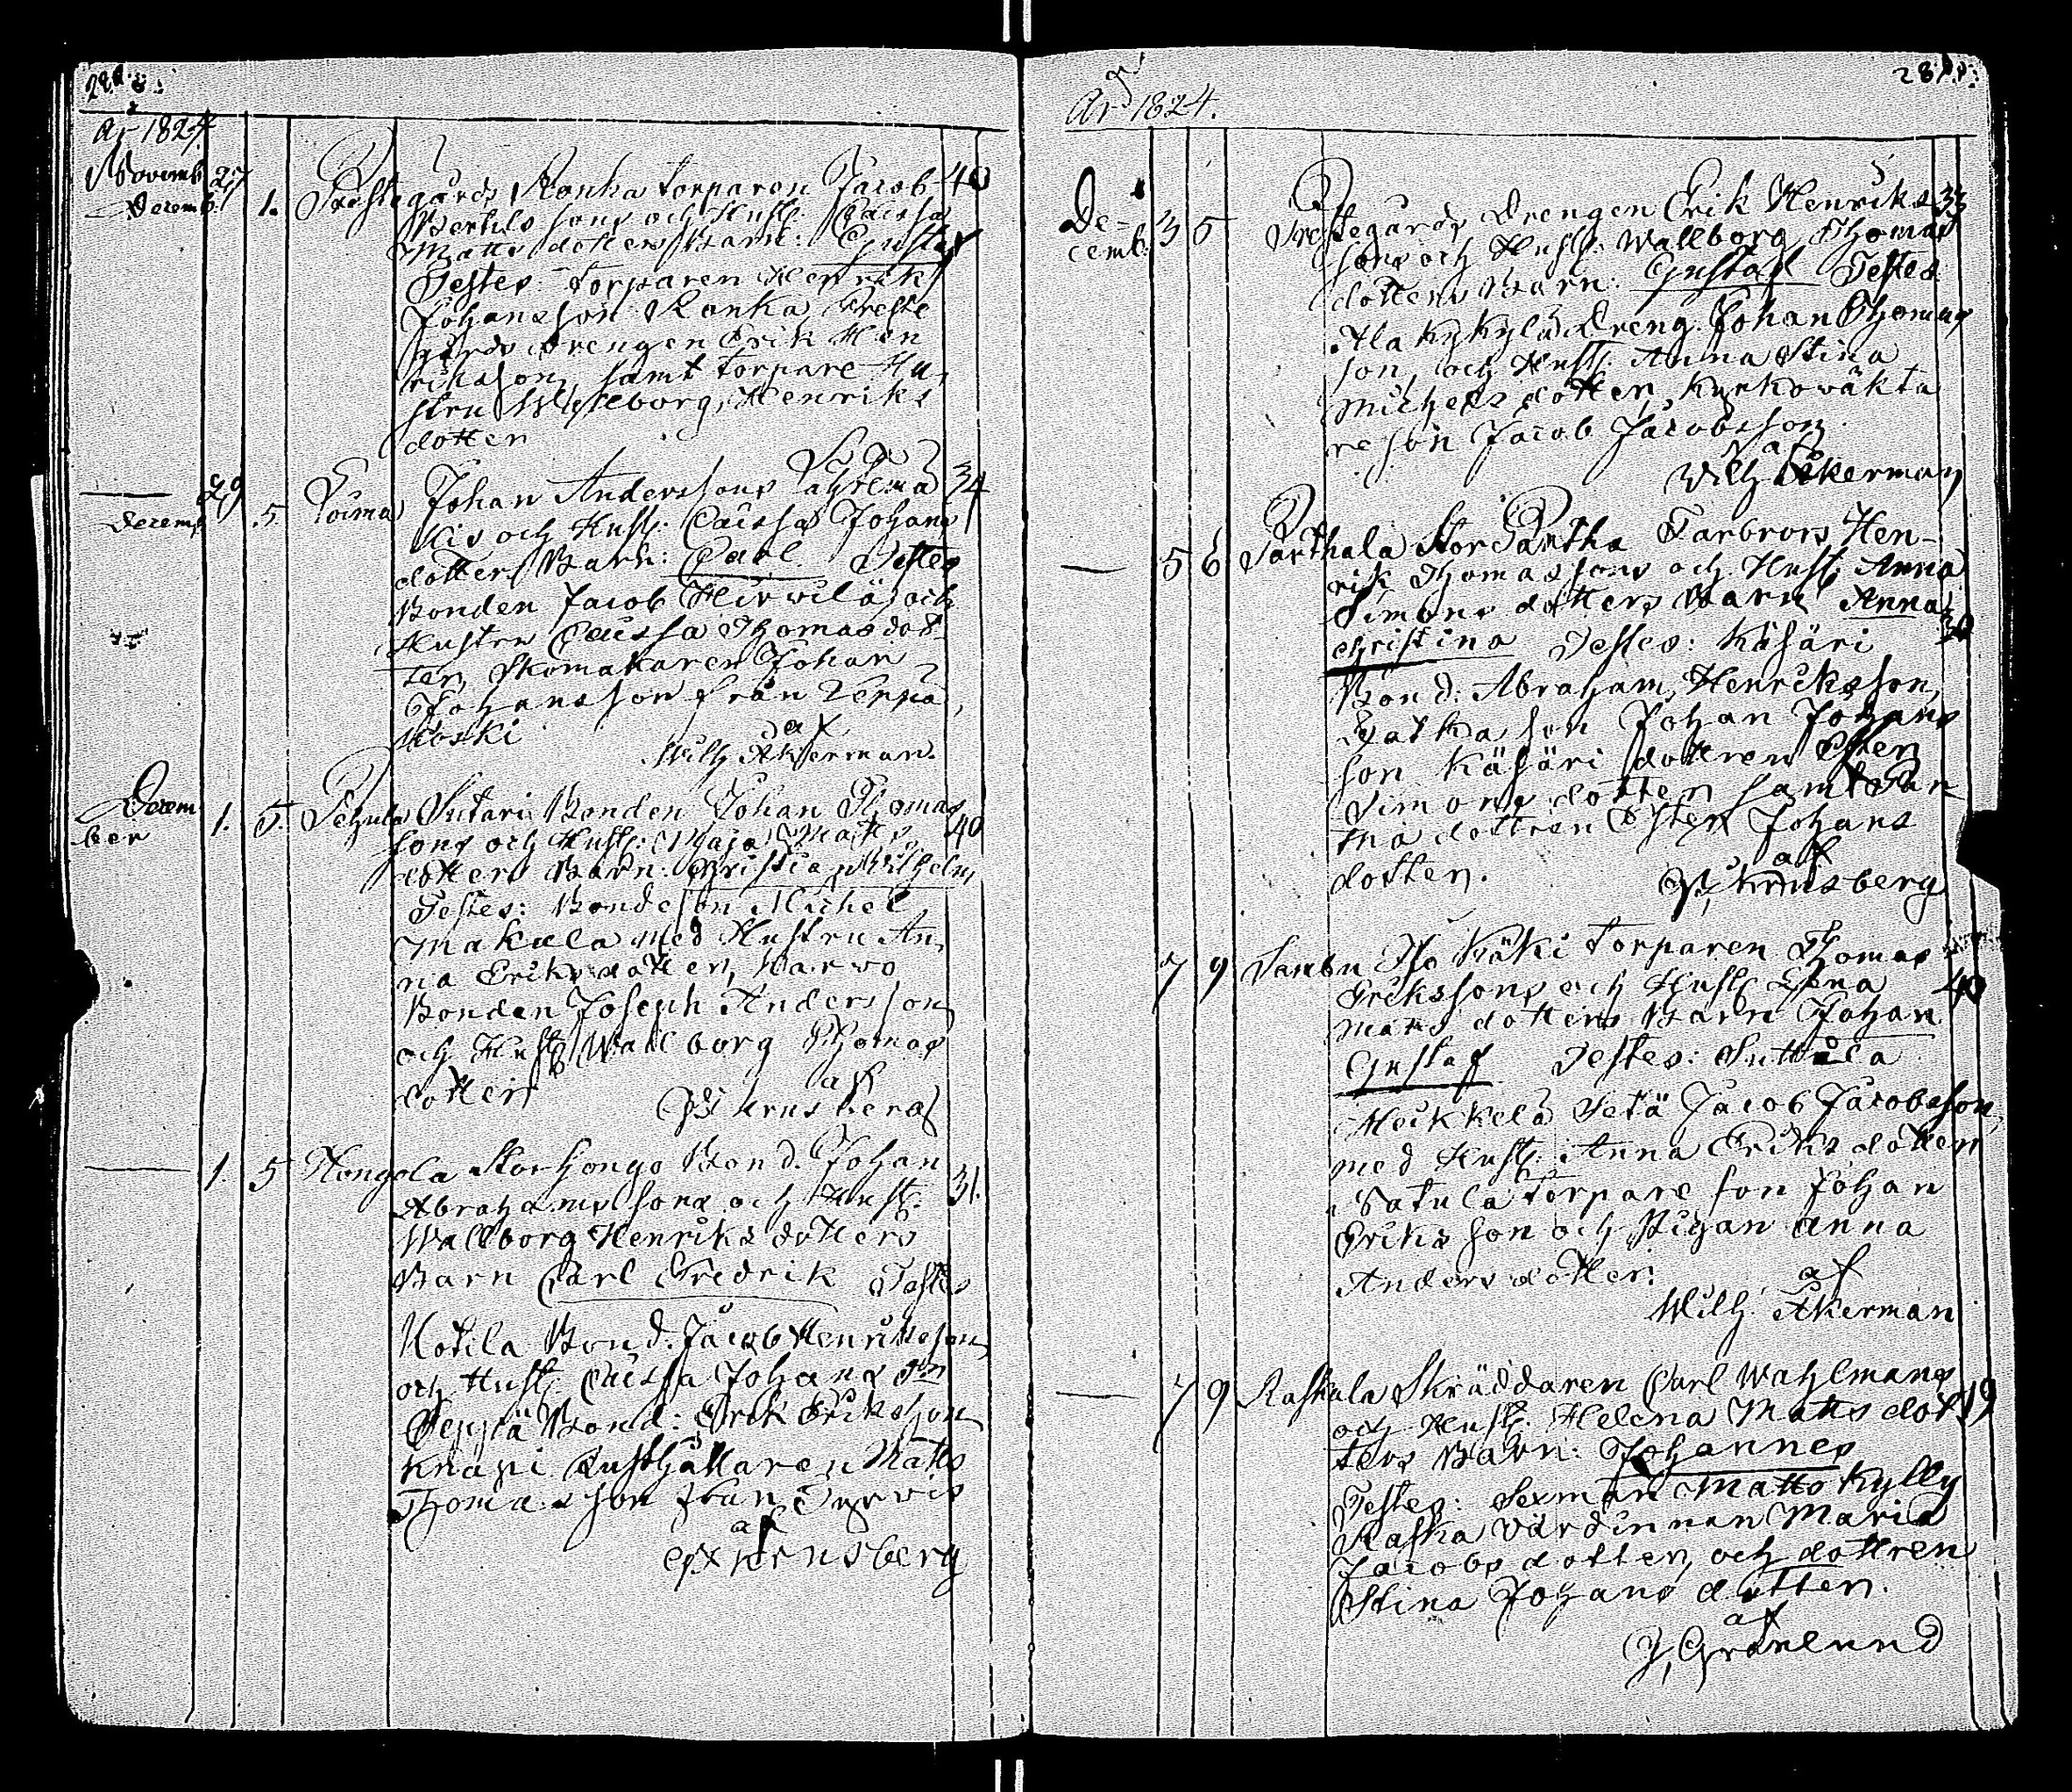 År 1824.
Novemb. 27
Decemb. 1. Prestegårds Ranka torparen Jacob 40
Bertils sons och Hust: Caissa
Matts dotters Barn: Gustaf
Testes: torparen Henrik
Johansson Ranka, Preste
gårds drengen Erik Hen
riksson, samt torpare Hu-
stru Wallborg Henriks
dotter
29
Decemb. 5. Loima Johan Anderssons 34
och Hust: Caissa Johans
dotters Barn: Carl. Testes
Bonden Jacob Hirwilä och
Hustru Caissa Thomas dot-
ter, Skomakaren Johan
Johansson från Leppä
koski
af
Wilh Åkerman.
Decem
ber 1. 5. Sutari Bonden Johan Thomas 40
sons och Hust: Maja Matts
dotters Barn: Christian Wilhelm
Testes: Bondeson Michel
Makula med Hustru An
na Eriks dotter,
Bonden Joseph Andersson
och Hust: Wallborg Thomas
dotter
af
1. 5 Hongola Storhongo Bond. Johan 31.
Abrahamssons och Hust:
Wallborg Henriks dotters
Barn Carl Fredrik Testes
Kotila Bond. Jacob Henriksson
och Hust: Caissa Johans dr
Seppä Bond: Erik Eriksson
Knapi Rusthållaren Matts
Thomasson från
af
År 1824.
De-
cemb: 3 5 Prestegårds Drengen Erik Henriks 33
sons och Hust: Wallborg Thomas
dotters Barn: Gustaf Testes
Alakykylä Dreng. Johan Thomas
son, och Hust: Anna Stina
Michels dotter,
re son Jacob Jacobsson
af
Wilh Åkerman
5 6 Parthala Stor Farbrors Hen-
rik Thomassons och Hust: Anna
Simons dotters Barn Anna 30
Christina Testes: Käsäri
Bond: Abraham Henriksson,
son Johan Johans
son Käsäri dottren Ester
Simons dotter samt Pan
dottren Ester Johans
dotter.
af
7 9 Sambu Iso Käki torparen Thomas
Erikssons och Hust: Lena 40
Matts dotters Barn Johan
Gustaf Testes: Suttila
Heikkelä Setä Jacob Jacobsson,
med Hust: Anna Eriks dotter
Satula torpare son Johan
Eriksson och Pigan Anna
Anders dotter:
af
Wilh: Åkerman
7 9 Raskala Skräddaren Carl Wahlmans
och Hust: Helena Matts dot 19
ters Barn: Johannes
Testes: Sexman Matts Kylly
Raska värdinnan Maria
Jacobs dotter, och dottren
Stina Johans dotter.
af
J, Grönlund